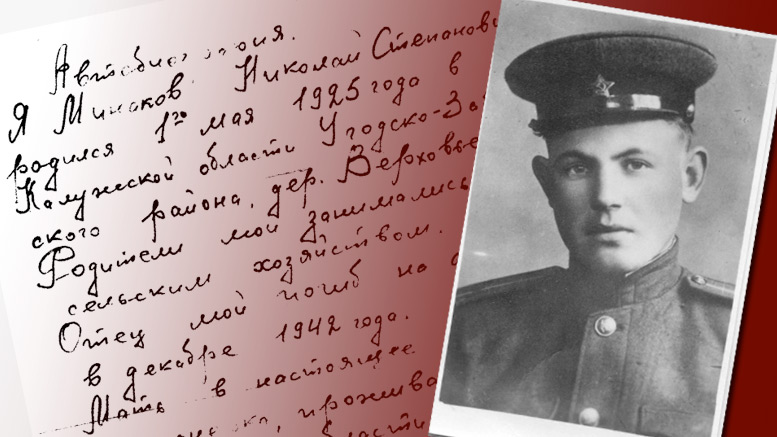 Автобиография.
Я Минаков Николай Степанови
родился 1го мая 1925 года в
Калужской области Угодско-За
ского района, дер. Верховье
Родители мои занимались
сельским хозяйством.
Отец мой погиб на
в декабре 1942 года.
Мать в настоящее
прожива
области